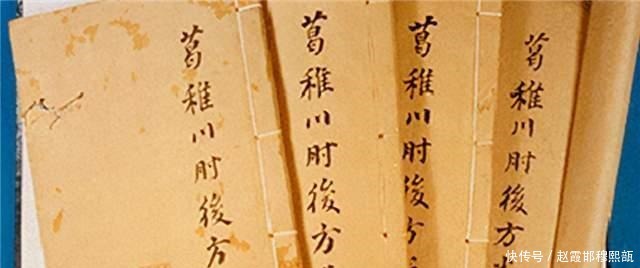 葛稚川肘後方
葛稚川肘後方
葛稚川肘後方
葛稚川肘後方
快传号/赵霞邯穆熙瓿